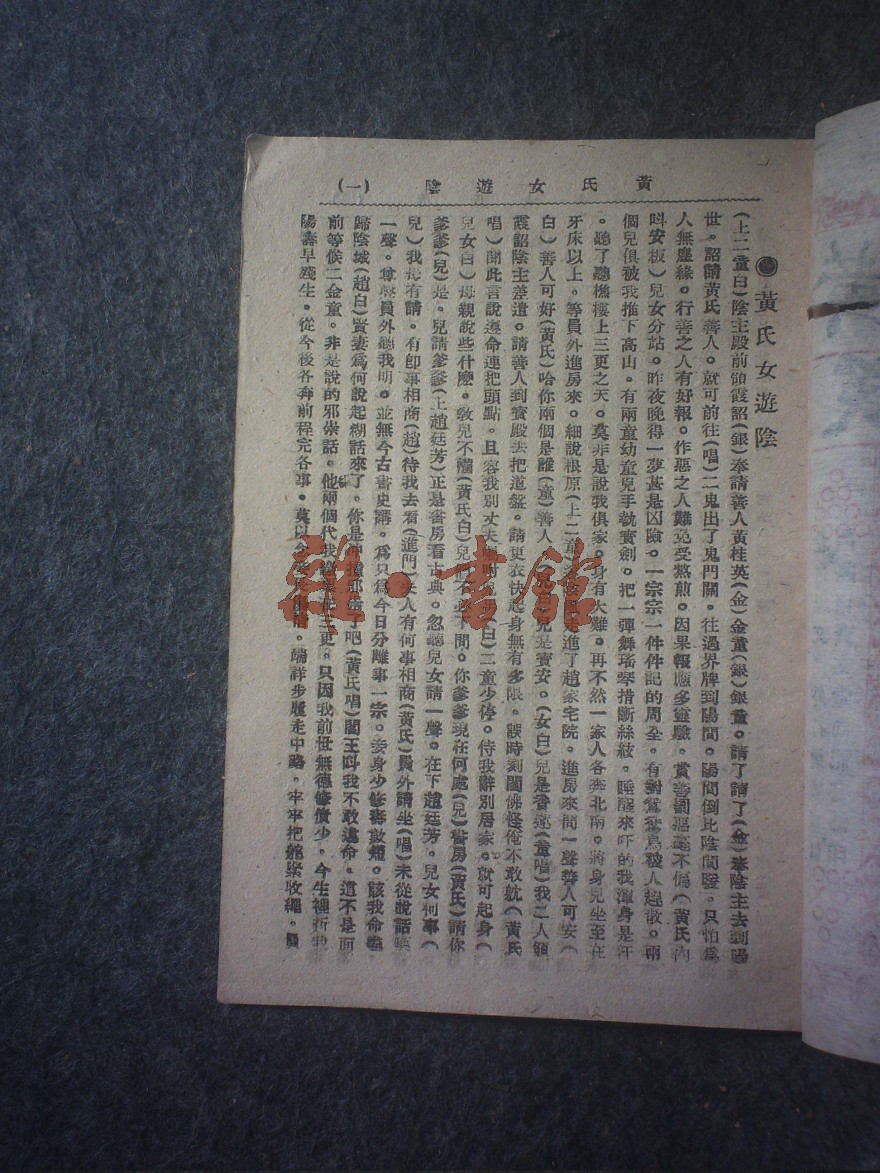 黃氏女遊陰 (一)
●黃氏女遊陰
(上二童白)陰主殿前領霞詔(銀)奉請善人黃桂英(金)金童(銀)銀童。請了請了(金)奉陰主去到陽
世。詔請黃氏善人。就可前往(唱)二鬼出了鬼門關。往過界牌到陽間。陽間倒比陰間暖。只怕為
人無塵緣。行善之人有好報。作惡之人難免受熬煎。因果報應多靈驗。賞善罰惡毫不偏(黃氏內
叫安板)兒女分站。昨夜晚得一夢甚是凶險。一宗宗一件件記的周全。有對鴛鴦鳥被人趕散。兩
個兒俱被我推下高山。有兩童幼童兒手執寶劍。把一彈舞瑤琴措斷絲絃。睡醒來吓的我渾身是汗
。聽了聽樵樓上三更之天。莫非是說我俱家。身有大難。再不然一家人各奔北南。將身兒坐至在
牙床以上。等員外進房來。細說根原(上二童 走進了趙家宅院。進房來問一聲善人可安(
白)善人可好(黃氏)哈你兩個是誰(童)善人 (兒白)兒是寶安。(女白)兒是香蓮(童唱)我二人領
霞詔陰主差遣。請善人到寶殿去把道盤。請更衣快起身無有多限。誤時刻閻佛怪俺不敢躭(黃氏
唱)聞此言說遵命連把頭點。且容我別丈夫 (白)二童少停。侍我辭別居家。就可起身(
兒女白)母親說些什麼。教兒不懂(黃氏白)兒們不必下問。你爹爹現在何處(兒)書房(黃氏)請你
爹爹(兒)是。兒請爹爹(上趙廷芳)正是書房看古典。忽聽兒女請一聲。在下趙廷芳。兒女何事(
兒)我母有請。有即事相商(趙)待我去看(進門)夫人有何事相商(黃氏)員外請坐(唱)未從說話喚
一聲。尊聲員外聽我明。並無今古書史講。為只為今日分離事一宗。妾身少修善 燈。該我命喪
歸陰城(趙白)賢妻為何說起糊話來了。你是 了吧(黃氏唱)閻王叫我不敢違命。這不是面
前等候二金童。非是說的邪崇話。他兩個代我 三更。只因我前世無德修債少。今生裡折我
陽壽早喪生。從今後各奔前程完各事。莫以 端詳步履走中路。牢牢把 緊收繩。
雜·書館